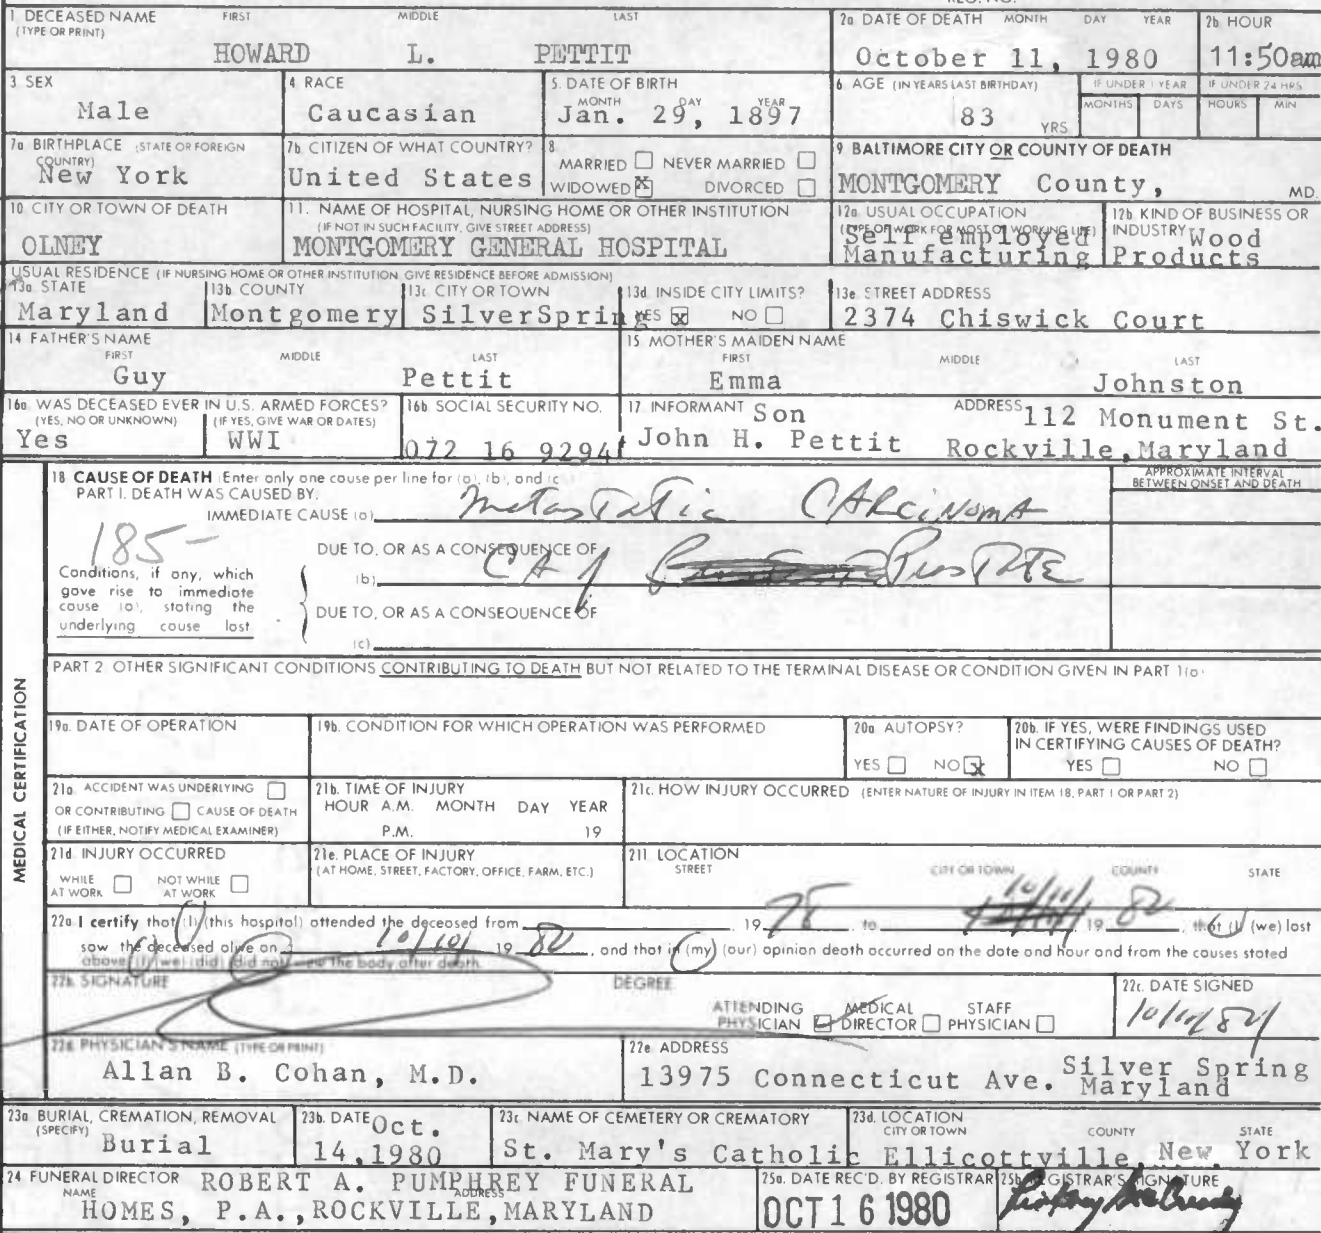 REG. NO.
1. DECEASED NAME (TYPE OR PRINT) FIRST MIDDLE LAST
HOWARD L. PETTIT
2a DATE OF DEATH MONTH DAY YEAR
October 11, 1980
2b HOUR
11:50am
3 SEX
Male
4 RACE
Caucasian
5. DATE OF BIRTH
MONTH DAY YEAR
Jan. 29, 1897
6 AGE (IN YEARS LAST BIRTHDAY)
83 YRS
IF UNDER 1 YEAR
MONTHS DAYS
IF UNDER 24 HRS
HOURS MIN
7a BIRTHPLACE (STATE OR FOREIGN COUNTRY)
New York
7b. CITIZEN OF WHAT COUNTRY?
United States
8
MARRIED NEVER MARRIED
WIDOWED X DIVORCED
9 BALTIMORE CITY OR COUNTY OF DEATH
MONTGOMERY County, MD.
10 CITY OR TOWN OF DEATH
OLNEY
11. NAME OF HOSPITAL, NURSING HOME OR OTHER INSTITUTION
(IF NOT IN SUCH FACILITY, GIVE STREET ADDRESS)
MONTGOMERY GENERAL HOSPITAL
12a USUAL OCCUPATION
(TYPE OF WORK FOR MOST OF WORKING LIFE)
Self employed
Manufacturing
12b KIND OF BUSINESS OR
INDUSTRY Wood
Products
USUAL RESIDENCE (IF NURSING HOME OR OTHER INSTITUTION GIVE RESIDENCE BEFORE ADMISSION)
13a STATE
Maryland
13b COUNTY
Montgomery
13c CITY OR TOWN
SilverSpring
13d INSIDE CITY LIMITS?
YES X NO
13e STREET ADDRESS
2374 Chiswick Court
14 FATHER'S NAME
FIRST MIDDLE LAST
Guy Pettit
15 MOTHER'S MAIDEN NAME
FIRST MIDDLE LAST
Emma Johnston
16a WAS DECEASED EVER IN U.S. ARMED FORCES?
(YES, NO OR UNKNOWN) (IF YES, GIVE WAR OR DATES)
Yes WWI
16b SOCIAL SECURITY NO.
072 16 9294
17 INFORMANT Son
John H. Pettit
ADDRESS 112 Monument St.
Rockville, Maryland
MEDICAL CERTIFICATION
18 CAUSE OF DEATH (Enter only one cause per line for (a), (b), and (c)
PART I. DEATH WAS CAUSED BY.
IMMEDIATE CAUSE (a) Metastatic CARCINOMA
APPROXIMATE INTERVAL
BETWEEN ONSET AND DEATH
185-
DUE TO, OR AS A CONSEQUENCE OF
(b) CA of Prostate
Conditions, if any, which
gave rise to immediate
cause (a), stating the
underlying cause last
DUE TO, OR AS A CONSEQUENCE OF
(c)
PART 2 OTHER SIGNIFICANT CONDITIONS CONTRIBUTING TO DEATH BUT NOT RELATED TO THE TERMINAL DISEASE OR CONDITION GIVEN IN PART 1(a)
19a. DATE OF OPERATION
19b. CONDITION FOR WHICH OPERATION WAS PERFORMED
20a AUTOPSY?
YES NO X
20b. IF YES, WERE FINDINGS USED
IN CERTIFYING CAUSES OF DEATH?
YES NO
21a. ACCIDENT WAS UNDERLYING
OR CONTRIBUTING CAUSE OF DEATH
(IF EITHER, NOTIFY MEDICAL EXAMINER)
21b. TIME OF INJURY
HOUR A.M. MONTH DAY YEAR
P.M. 19
21c. HOW INJURY OCCURRED (ENTER NATURE OF INJURY IN ITEM 18, PART 1 OR PART 2)
21d. INJURY OCCURRED
WHILE AT WORK NOT WHILE AT WORK
21e. PLACE OF INJURY
(AT HOME, STREET, FACTORY, OFFICE, FARM, ETC.)
21f LOCATION
STREET CITY OR TOWN COUNTY STATE
22a I certify that (I) (this hospital) attended the deceased from 19 78 to 10/11/ 19 80, that (I) (we) last
saw the deceased alive on 10/10/ 19 80, and that in (my) (our) opinion death occurred on the date and hour and from the causes stated
above, (I) (we) (did) (did not) view the body after death
22b SIGNATURE
DEGREE
ATTENDING PHYSICIAN MEDICAL DIRECTOR STAFF PHYSICIAN
22c. DATE SIGNED
22d PHYSICIAN'S NAME (TYPE OR PRINT)
Allan B. Cohan, M.D.
22e ADDRESS
13975 Connecticut Ave. Silver Spring
Maryland
23a BURIAL, CREMATION, REMOVAL
(SPECIFY)
Burial
23b. DATE Oct.
14,1980
23c NAME OF CEMETERY OR CREMATORY
St. Mary's Catholic
23d. LOCATION
CITY OR TOWN COUNTY STATE
Ellicottville, New York
24 FUNERAL DIRECTOR ROBERT A. PUMPHREY FUNERAL
NAME ADDRESS
HOMES, P.A., ROCKVILLE, MARYLAND
25a. DATE REC'D. BY REGISTRAR
OCT 16 1980
25b REGISTRAR'S SIGNATURE